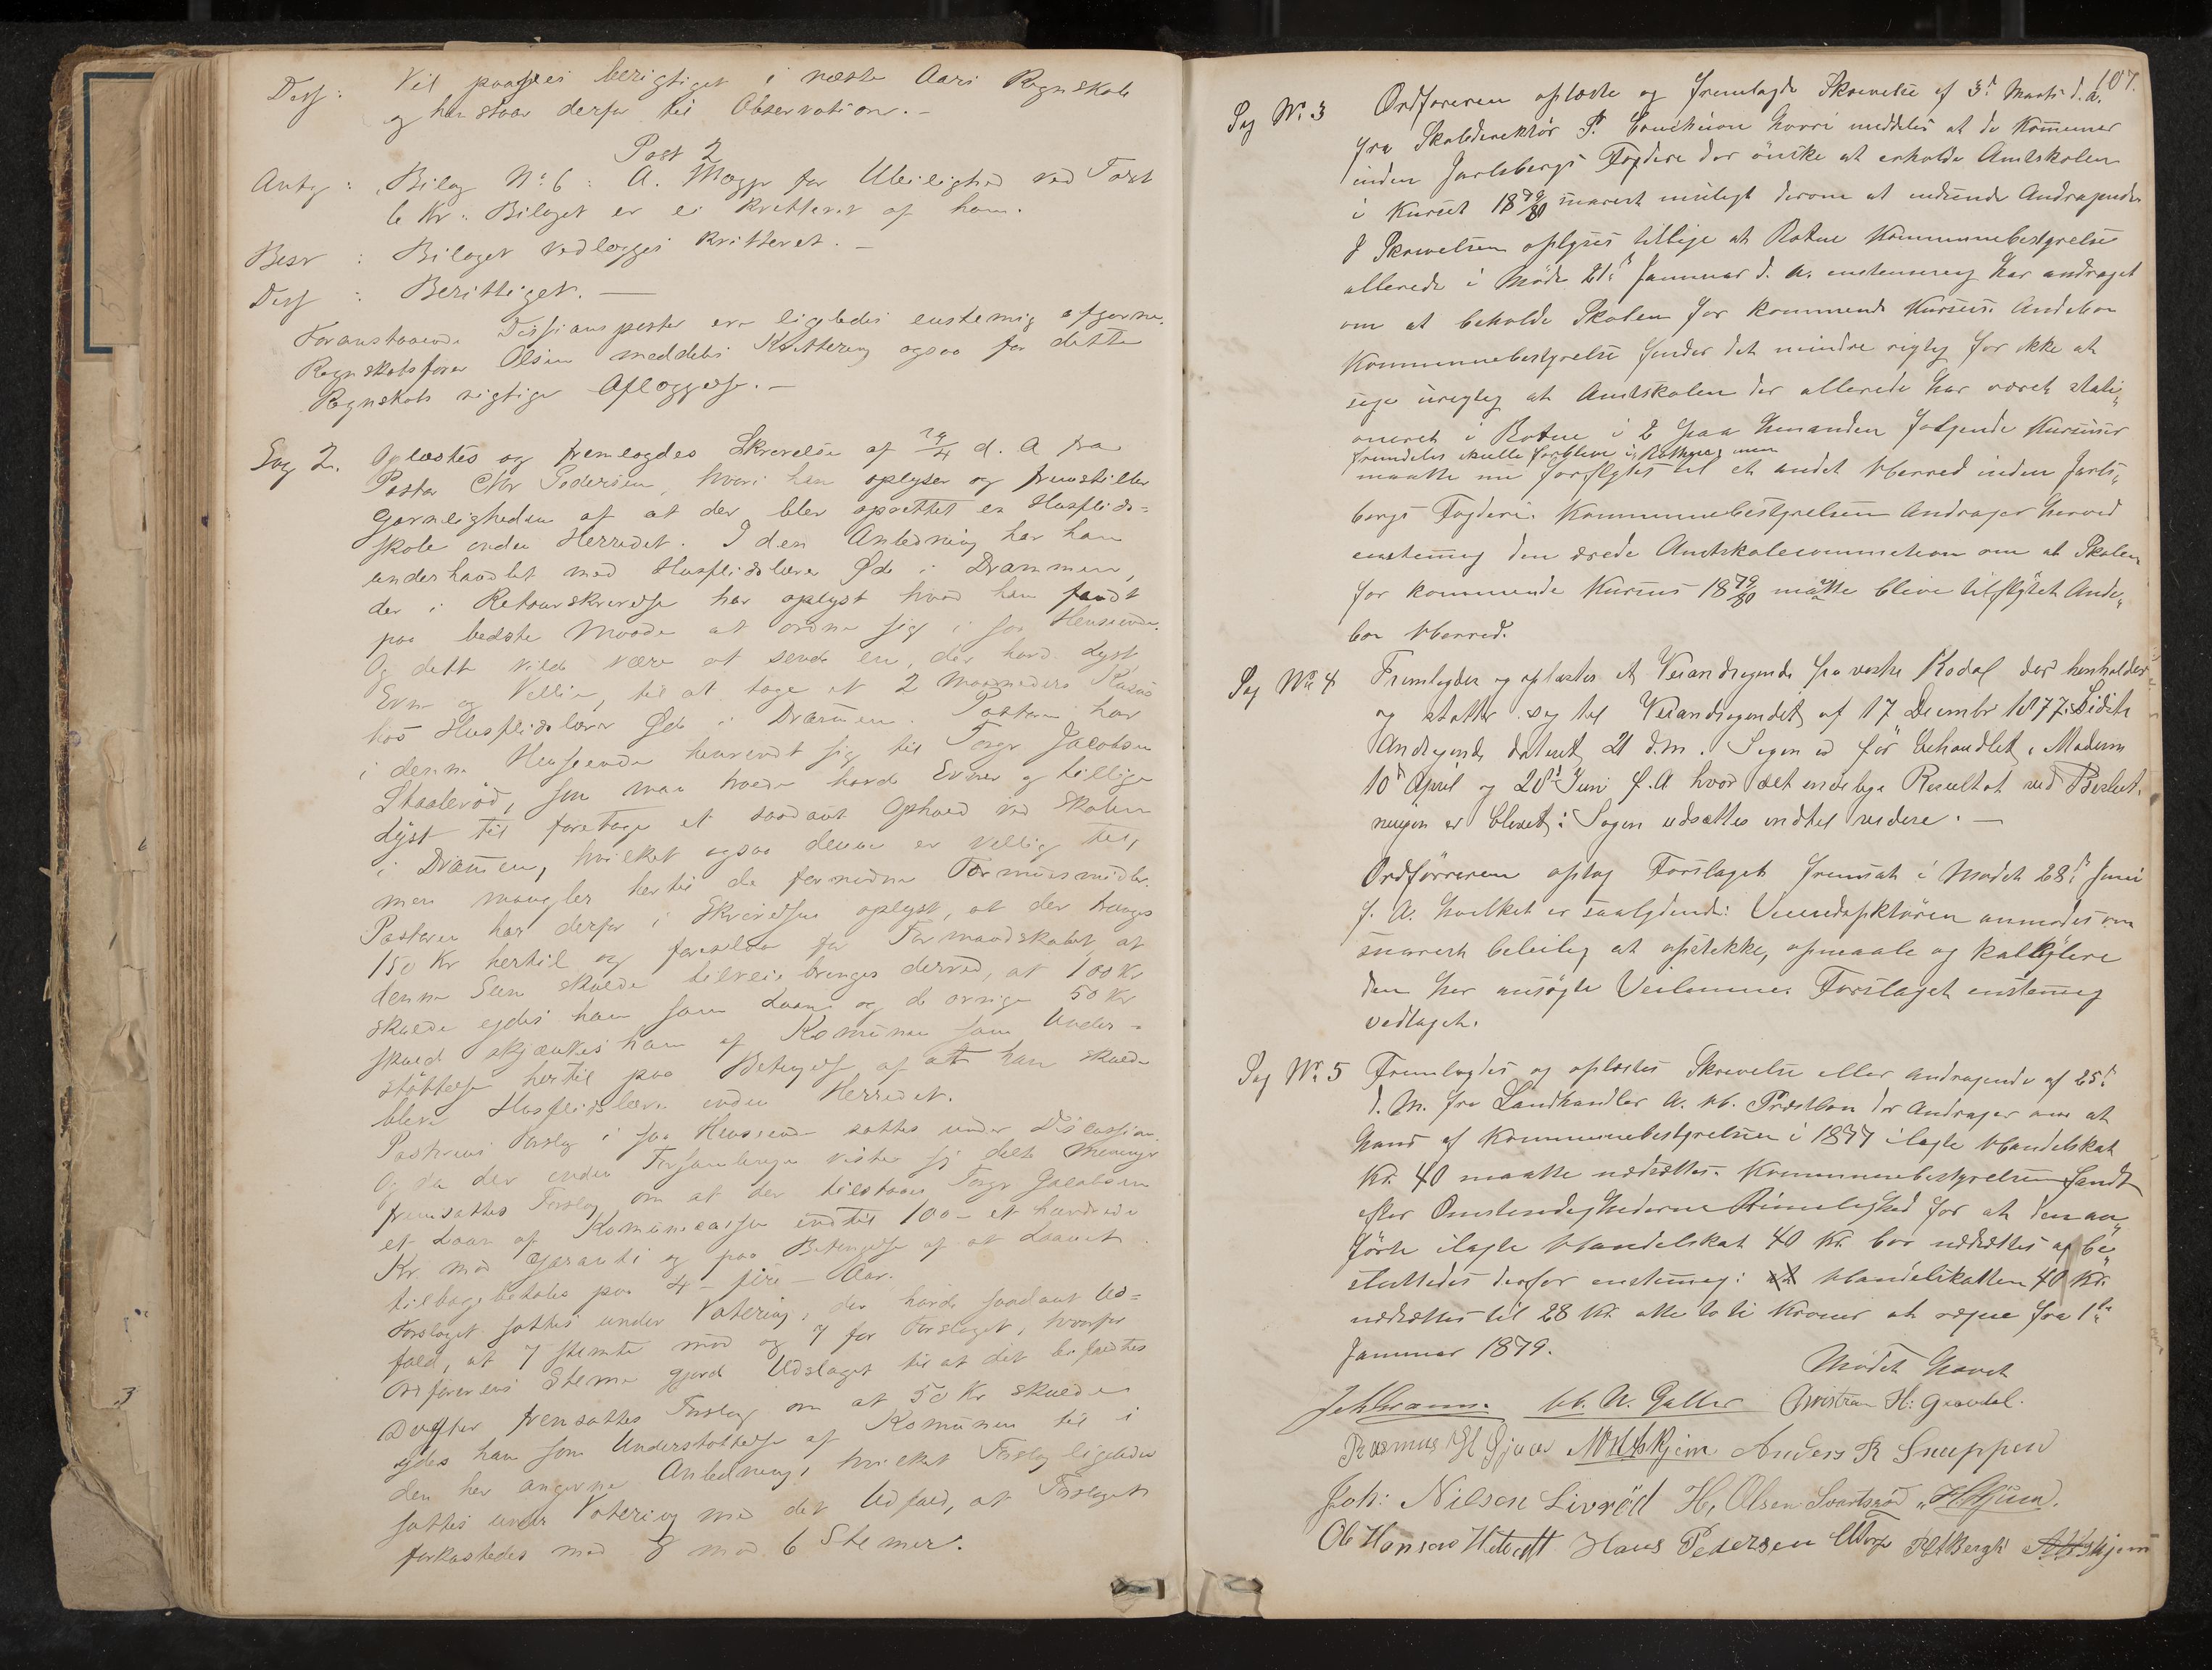 Des: Vil paasees berigtiget i næste Aars Regnskab
og henstaar derfor til Observation. –
Post 2
Antg: Bilag No 6: A. Møgge for Uleilighed ved Torv
6 Kr: Bilaget er ei kvitteret af ham.
Besv: Bilaget vedlægges kvitteret. –
Des: Berigtiget. —
Foranstaaende Desisionsposter ere ligeledes enstemig afgjorne.
Regnskabsfører Olsen meddeles Kvittering ogsaa for dette
Regnskabs rigtige Aflæggelse. –
Sag 2. Oplæstes og fremlagdes Skrivelse af 29/4 d. A fra
Pastor Chr Pedersen, hvori han oplyser og fremstiller
Gavnligheden af at der blev oprettet en Husflids-
skole inden Herredet. I den Anledning har han
underhandlet med Husflidslærer Øde i Drammen,
der i Retourskrivelse har oplyst hvad han fandt
paa bedste Maade at ordne sig i saa Henseende.
Og dette vilde være at sende en, der havde Lyst
Evne og Vellie, til at tage et 2 Maaneders Kursus
hos Husflidslærer Øde i Drammen. Pastoren har
i denne Henseende henvendt sig til Torger Jacobsen
Skaalerød, som man troede havde Evner og tillige
Lyst til foretage et saadant Ophold ved Skolen
i Drammen, hvilket ogsaa denne er villig til,
men mangler hertil de fornødne Formuesmidler.
Pastoren har derfor i Skrivelsen oplyst, at der trænges
150 Kr hertil og foreslaar for Formandskabet at
denne Sum skulde tilveiebringes derved, at 100 Kr
skulde ydes ham som Laan og de øvrige 50 Kr
skuld skjænkes ham af Komunen som Under-
støttelse hertil paa Betingelse af at han skulde
blive Husflidslærer inden Herredet.
Pastorens Forslag i saa Henseende sattes under Discussion.
Og da der inden Forsamlingen viste sig delte Meninger
fremsattes Forslag om at der tilstaaes Torger Jacobsen
et Laan af Komunecassen indtil 100 – et hundrede
Kr. mod Garanti og paa Betingelse af at Laanet
tilbagebetales paa 4 – fire – Aar.
Forslaget sattes under Votering, der havde saadant Ud-
fald, at 7 stemte mod og 7 for Forslaget, hvorfor
Ordførerens Stemme gjorde Udslaget til at det bifaldtes
Derefter fremsattes Forslag om at 50 Kr skulde
ydes ham som Understøttelse af Komunen til i
den her angivne Anledning, hvilket Forslag ligeledes
sattes under Votering med det Udfald, at Forslaget
forkastedes med 8 mod 6 Stemer.
107.
Sag No 3 Ordføreren oplæste og fremlagde Skrivelse af 3d Marts d. A.
fra Skoledirektør P. hvori meddeles at de Komuner
inden Jarlsbergs Fogderi der ønske at erholde Amtskolen
i Kurset 1879/80 snarest muligt derom at indsende Andragende
I Skrivelsen oplyses tillige at Botne Kommunebestyrelse
allerede i Møde 21d Januar d. A. enstemmig har andraget
om at beholde Skolen for kommende Kursus. Andebu
Kommunebestyrelse finder det mindre rigtig for ikke at
sige urigtig at Amtskolen der allerede har været stati-
oneret i Botne i 2 paa hinanden følgende Kursuser
fremdeles skulle forblive i Bothne, men
maatte nu forflyttes til et andet Herred inden Jarls-
bergs Fogderi. Kommunebestyrelsen Andrager herved
enstemig den ærede Amtskolecommission om at Skolen
for kommende Kursus 1879/80 måtte blive tilflyttet Ande-
bu Herred.
Sag No 4 Fremlagdes og oplæstes et Veiandragende fra vestre Kodal der henholder
og støtter sig til Veiandragendet af 17 Decembr 1877. Sidste
Andragende dateret 21 d.M. Sagen er før behandlet i Møderne
10d April og 28d Juni f. A hvor det endelige Resultat ved Beslut-
ningen er blevet: Sagen udsættes indtil videre. —
Ordføreren optog Forslaget fremsat i Mødet 28d Juni
f. A. hvilket er saalydende: Veiinspektøren anmodes om
snarest beleilig at opstikke, opmaale og kalkylere
den her ansøgte Veilinie. Forslaget enstemig
vedtaget.
Sag No 5 Fremlagdes og oplæstes Skrivelse eller Andragende af 25d
d. M. fra Landhandler A. H. Præstløn der Andrager om at
hans af Kommunebestyrelsen i 1877 ilagte Handelskat
Kr. 40 maatte nedsættes. Kommunebestyrelsen fandt
efter Omstendighederne Rimelighed for at den an-
førte ilagte Handelskat 40 Kr. bør nedsættes og be-
sluttedes derfor enstemmig: at Handelskatten 40 Kr.
nedsættes til 28 Kr. otte to ti Kroner at regne fra 1ste
Januar 1879.
Mødet hævet
H. A. Galler Christian H: Gravdal.
Rasmus Gjæver Anders R Snappen
Joh: Nilsen Livrød H. Olsen Svartsrød
Ole Hanson Hetvedt Hans Pedersen